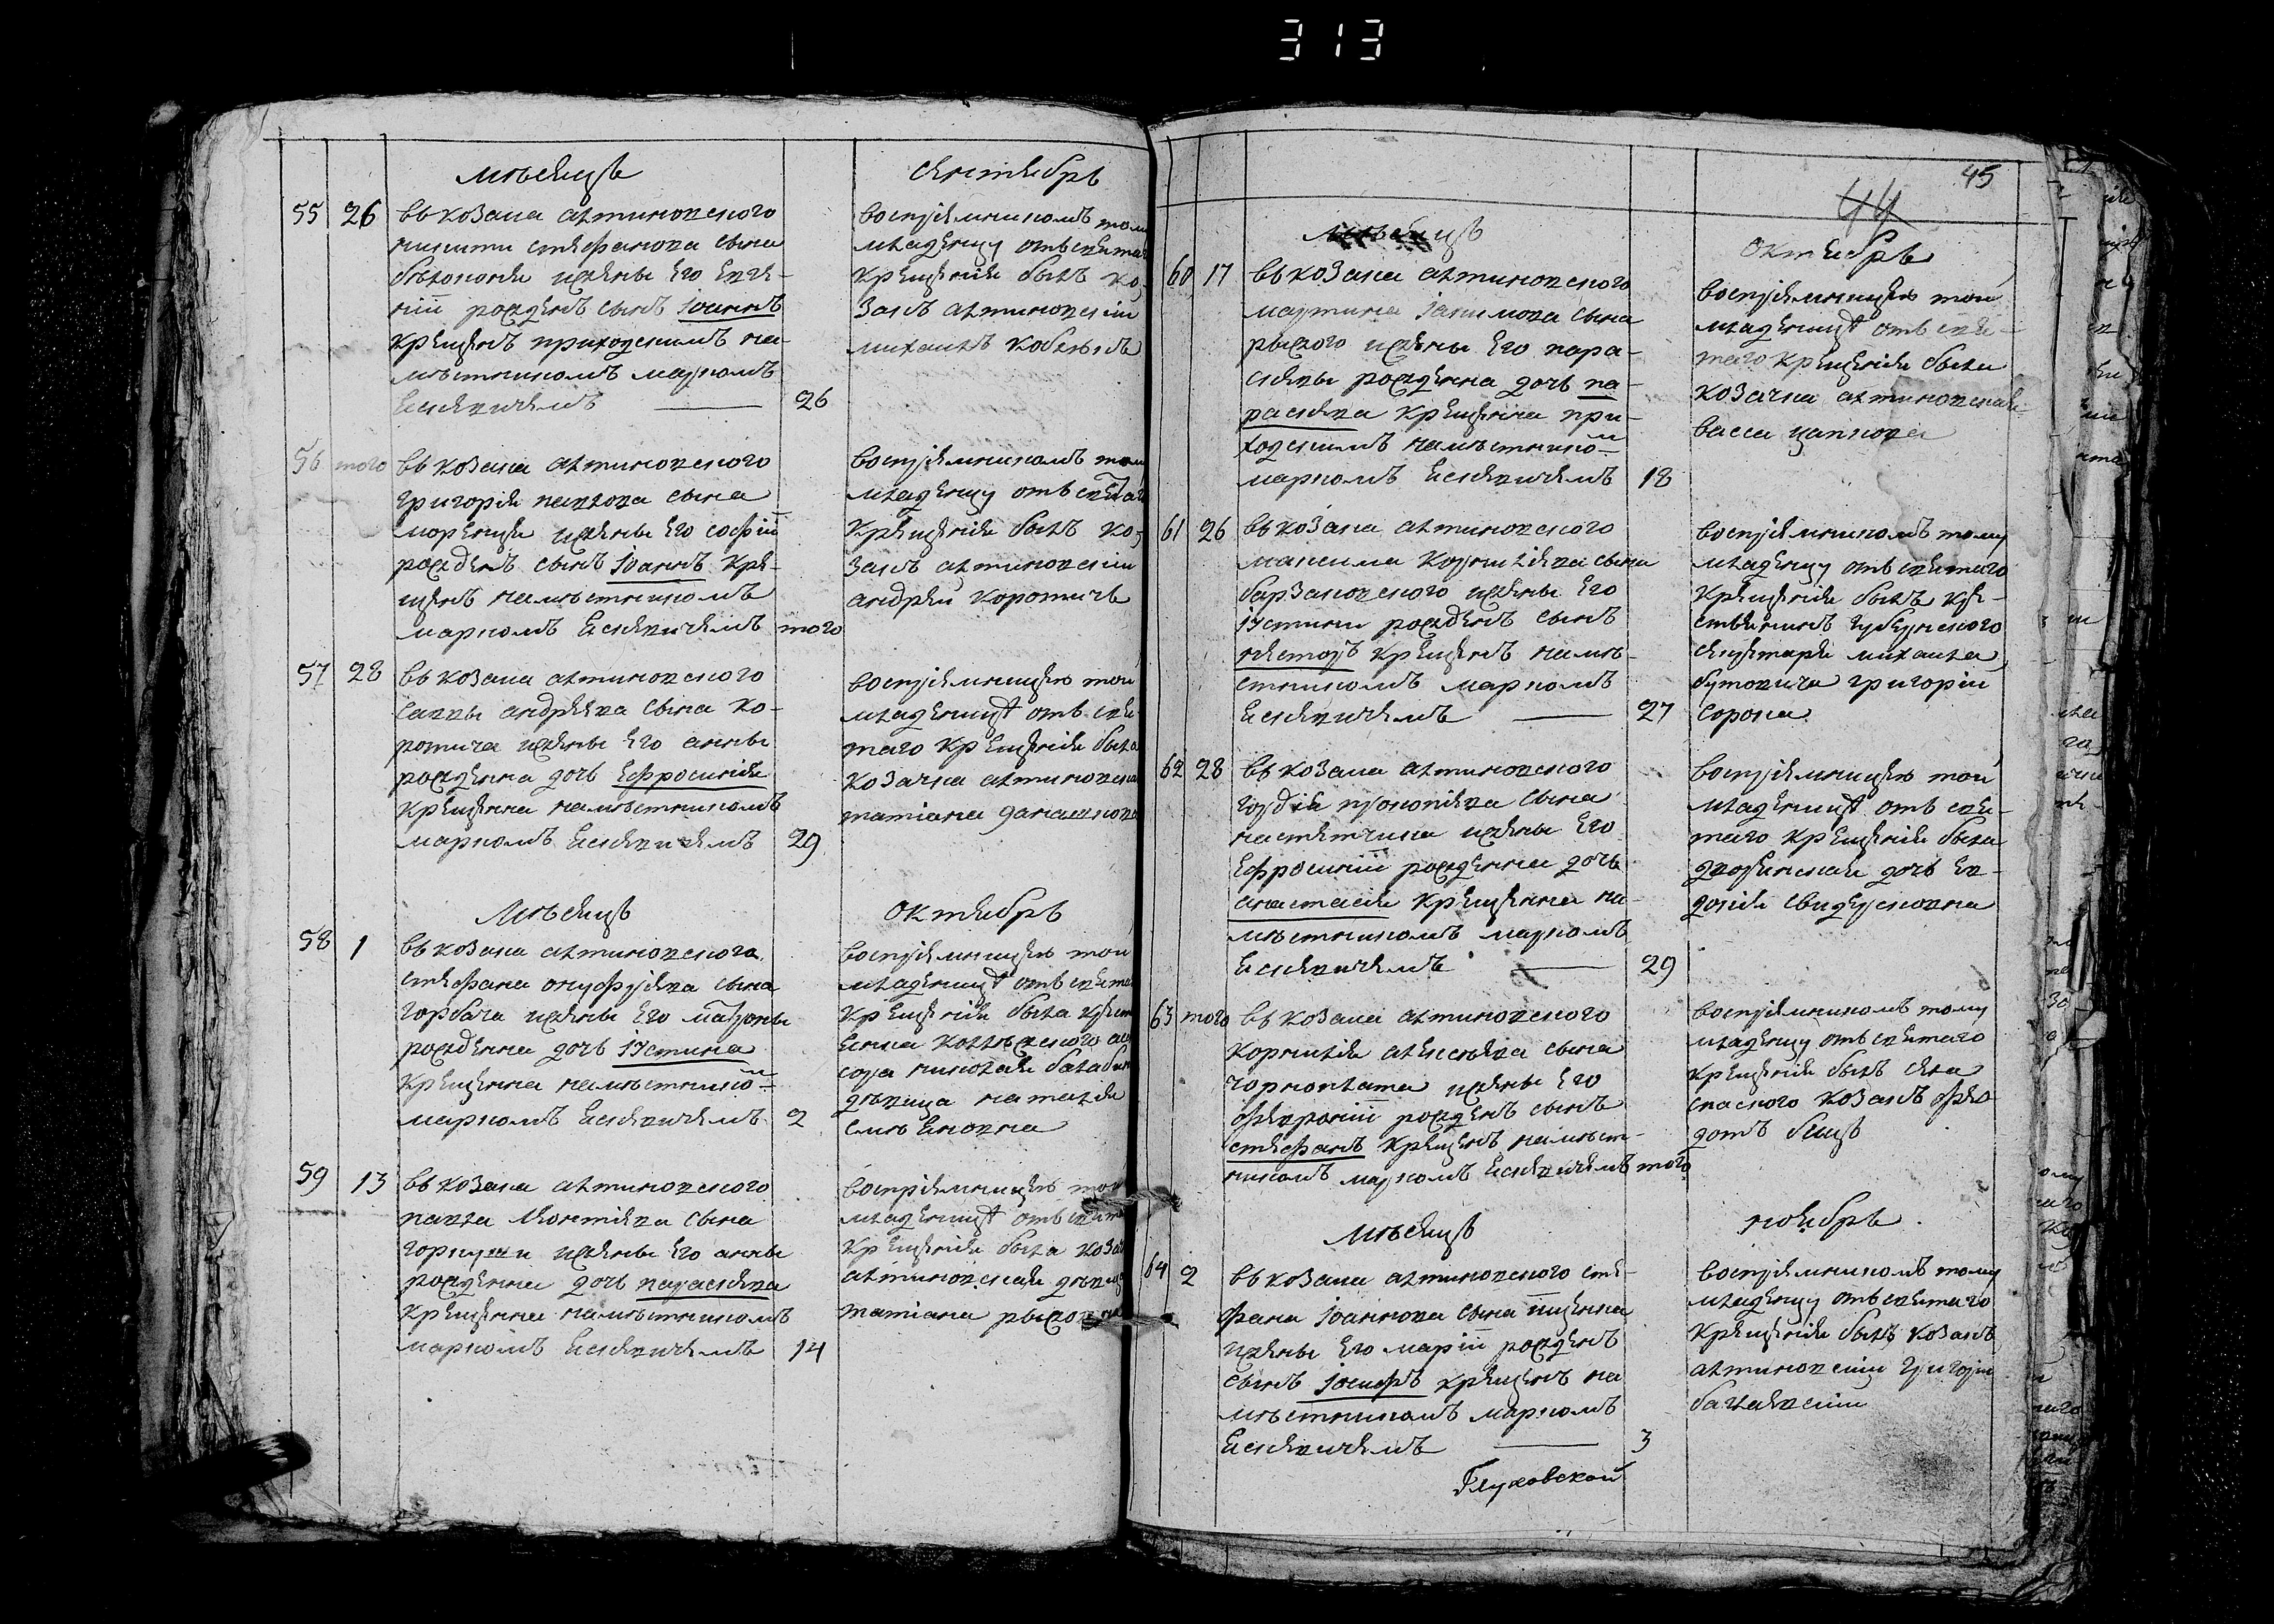 313
мѣсяцъ
сентябрь
55 26 въ козака алтиновского
никити стефанова сына
бѣлоконя и жены его евге-
нїи рожденъ сынъ Іоаннъ
крещенъ приходскимъ на-
мѣстникомъ маркомъ
Есіевичемъ 26
воспріемникомъ тому
младенцу отъ свята
крещенія былъ ко-
закъ алтиновскїи
михаилъ кобелякъ
56 того въ козака алтиновского
григорія павлова сына
моренця и жены его софїи
рожденъ сынъ Іоаннъ кре-
щенъ намѣстникомъ
маркомъ Есіевичемъ того
воспріемникомъ тому
младенцу отъ свята
крещенія былъ ко-
закъ алтиновскїи
андреи коротичь
57 28 въ козака алтиновского
саввы андреева сына ко-
ротича и жены его анны
рожденна дочь ефросинія
крещенна намѣстникомъ
маркомъ Есіевичемъ 29
воспріемницею тои
младеницѣ отъ свя-
таго крещенія была
козачка алтиновска
татіана
Мѣсяцъ
октябрь
58 1 въ козака алтиновского
стефана онуфріева сына
горбача и жены его матроны
рожденна дочь Іустина
крещенна намѣстнико-
маркомъ Есіевичемъ 2
воспріемницею тои
младеницѣ отъ свята
крещенія была
николая
дѣвица наталія
59 13 въ козака алтиновского
павла леонтіева сына
и жены его анны
рожденна дочь параскева
крещенна намѣстникомъ
маркомъ Есіевичемъ 14
воспріемницею тои
младеницѣ отъ свята
крещенія была коза
алтиновская дѣвица
татіана
45
44
мѣсяцъ
октябрь
60 17 въ козака алтиновского
мартина Іакимова сына
рыжого и жены его пара-
скевы рожденна дочь па-
раскева крещенна при-
ходскимъ намѣстнико-
маркомъ Есіевичемъ 18
воспріемницею тои
младеницѣ отъ свя-
таго крещенія была
козачка алтиновская
васса
61 26 въ козака алтиновского
максима корниліева сына
барзаковского и жены его
Іустини рожденъ сынъ
несторъ крещенъ намѣ-
стникомъ маркомъ
Есіевичемъ 27
воспріемникомъ тому
младенцу отъ святаго
крещенія былъ кре-
стянинъ губернского
секретаря михаила
бутовича григорїи
сорока
62 28 въ козака алтиновского
гордія прокопіева сына
и жены его
ефросинїи рожденна дочь
анастасія крещенна на-
мѣстникомъ маркомъ
Есіевичемъ 29
воспріемницею тои
младеницѣ отъ свя-
таго крещенія была
дворянская дочь ев-
докія
63 того въ козака алтиновского
корнилія алексѣева сына
и жены его
февронїи рожденъ сынъ
стефанъ крещенъ намѣст-
никомъ маркомъ Есіевичемъ того
воспріемникомъ тому
младенцу отъ святаго
крещенія былъ села
спаского козакъ фео-
дотъ
мѣсяцъ
ноябрь
64 2 въ козака алтиновского сте-
фана Іоаннова сына
и жены его марїи рожденъ
сынъ Іосифъ крещенъ на
мѣстникомъ маркомъ
Есіевичемъ 3
воспріемникомъ тому
младенцу отъ святаго
крещенія былъ козакъ
алтиновскїи григорїи
Глуховской